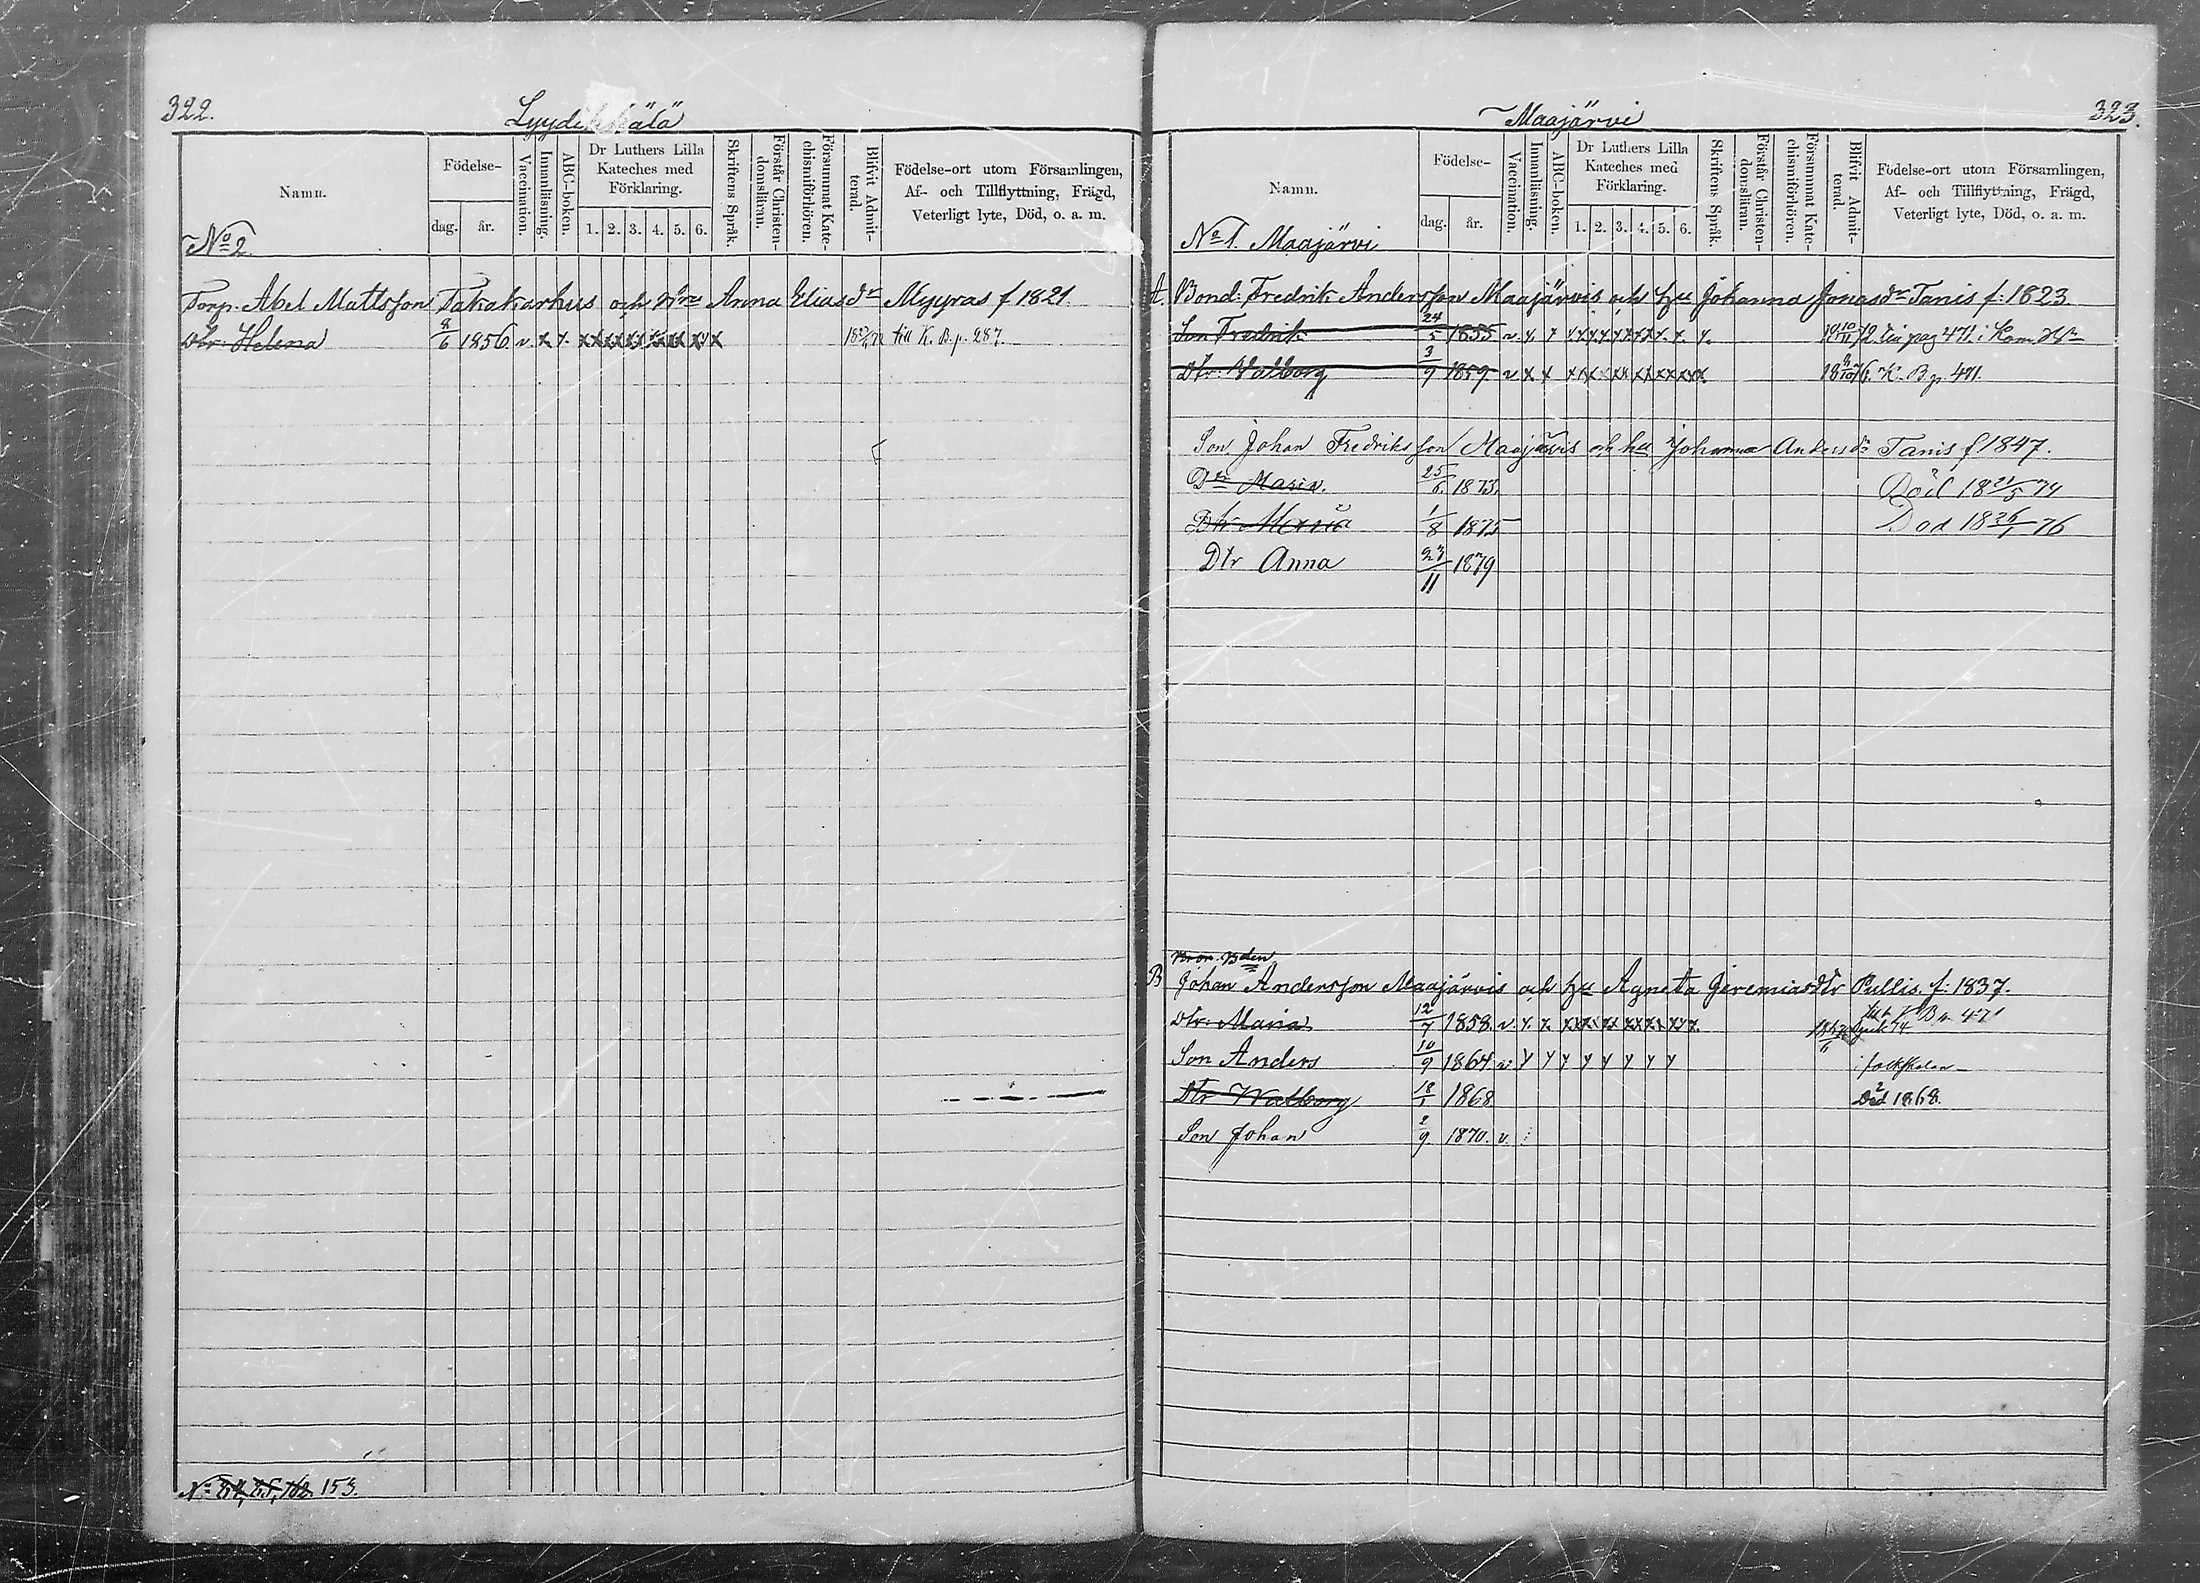 322.
Lyydikkälä
Namn.
Födelse-
dag.
år.
Vaccination.
Innanläsning.
ABC-boken.
Dr Luthers Lilla
Kateches med
Förklaring.
1. 2. 3. 4. 5. 6.
Skriftens Språk.
Förstår Christen-
domsläran.
Försummat Kate-
chismiförhören.
Blifvit Admit-
terad.
Födelse-ort utom Församlingen,
Af- och Tillflyttning, Frägd,
Veterligt lyte, Död, o. a. m.
No 2.
Torp. Abel Mattsson Takakarhus och Anna Eliasdr Myyras f 1821.
Dtr: Helena 8/6 1856. v. x x. till K. B. p. 287.
No 153.
323.
Maajärvi
Namn.
Födelse-
dag.
år.
Vaccination.
Innanläsning.
ABC-boken.
Dr Luthers Lilla
Kateches med
Förklaring.
1. 2. 3. 4. 5. 6.
Skriftens Språk.
Förstår Christen-
domsläran.
Försummat Kate-
chismiförhören.
Blifvit Admit-
terad.
Födelse-ort utom Församlingen,
Af- och Tillflyttning, Frägd,
Veterligt lyte, Död, o. a. m.
No 1. Maajärvi
A. Bond: Fredrik Andersson Maajärvis och hu Johanna Jonasdr Tanis f: 1823
Son Fredrik 24/5 1855 v. pag 471.
Dtr: Valborg 3/9 1859. v x x K. B p. 471.
Son Johan Fredriksson Maajärvis och hu Johanna Andersdr Tanis f 1847.
Dr Maria. 25/6 1873. Död 18 21/5 74
Dtr Maria 1/8 1875 Död 18 26/1 76
Dtr Anna 27/11 1879
B Johan Andersson Maajärvis och hu Agneta Jeremiasdtr Pullis. f: 1837.
Dtr: Maria 12/7 1858. v. x. x. K B p. 471
Son Anders 10/9 1864 v folkskolan
Dtr Walborg 18/1 1868 Död 1868.
Son Johan 2/9 1870. v.